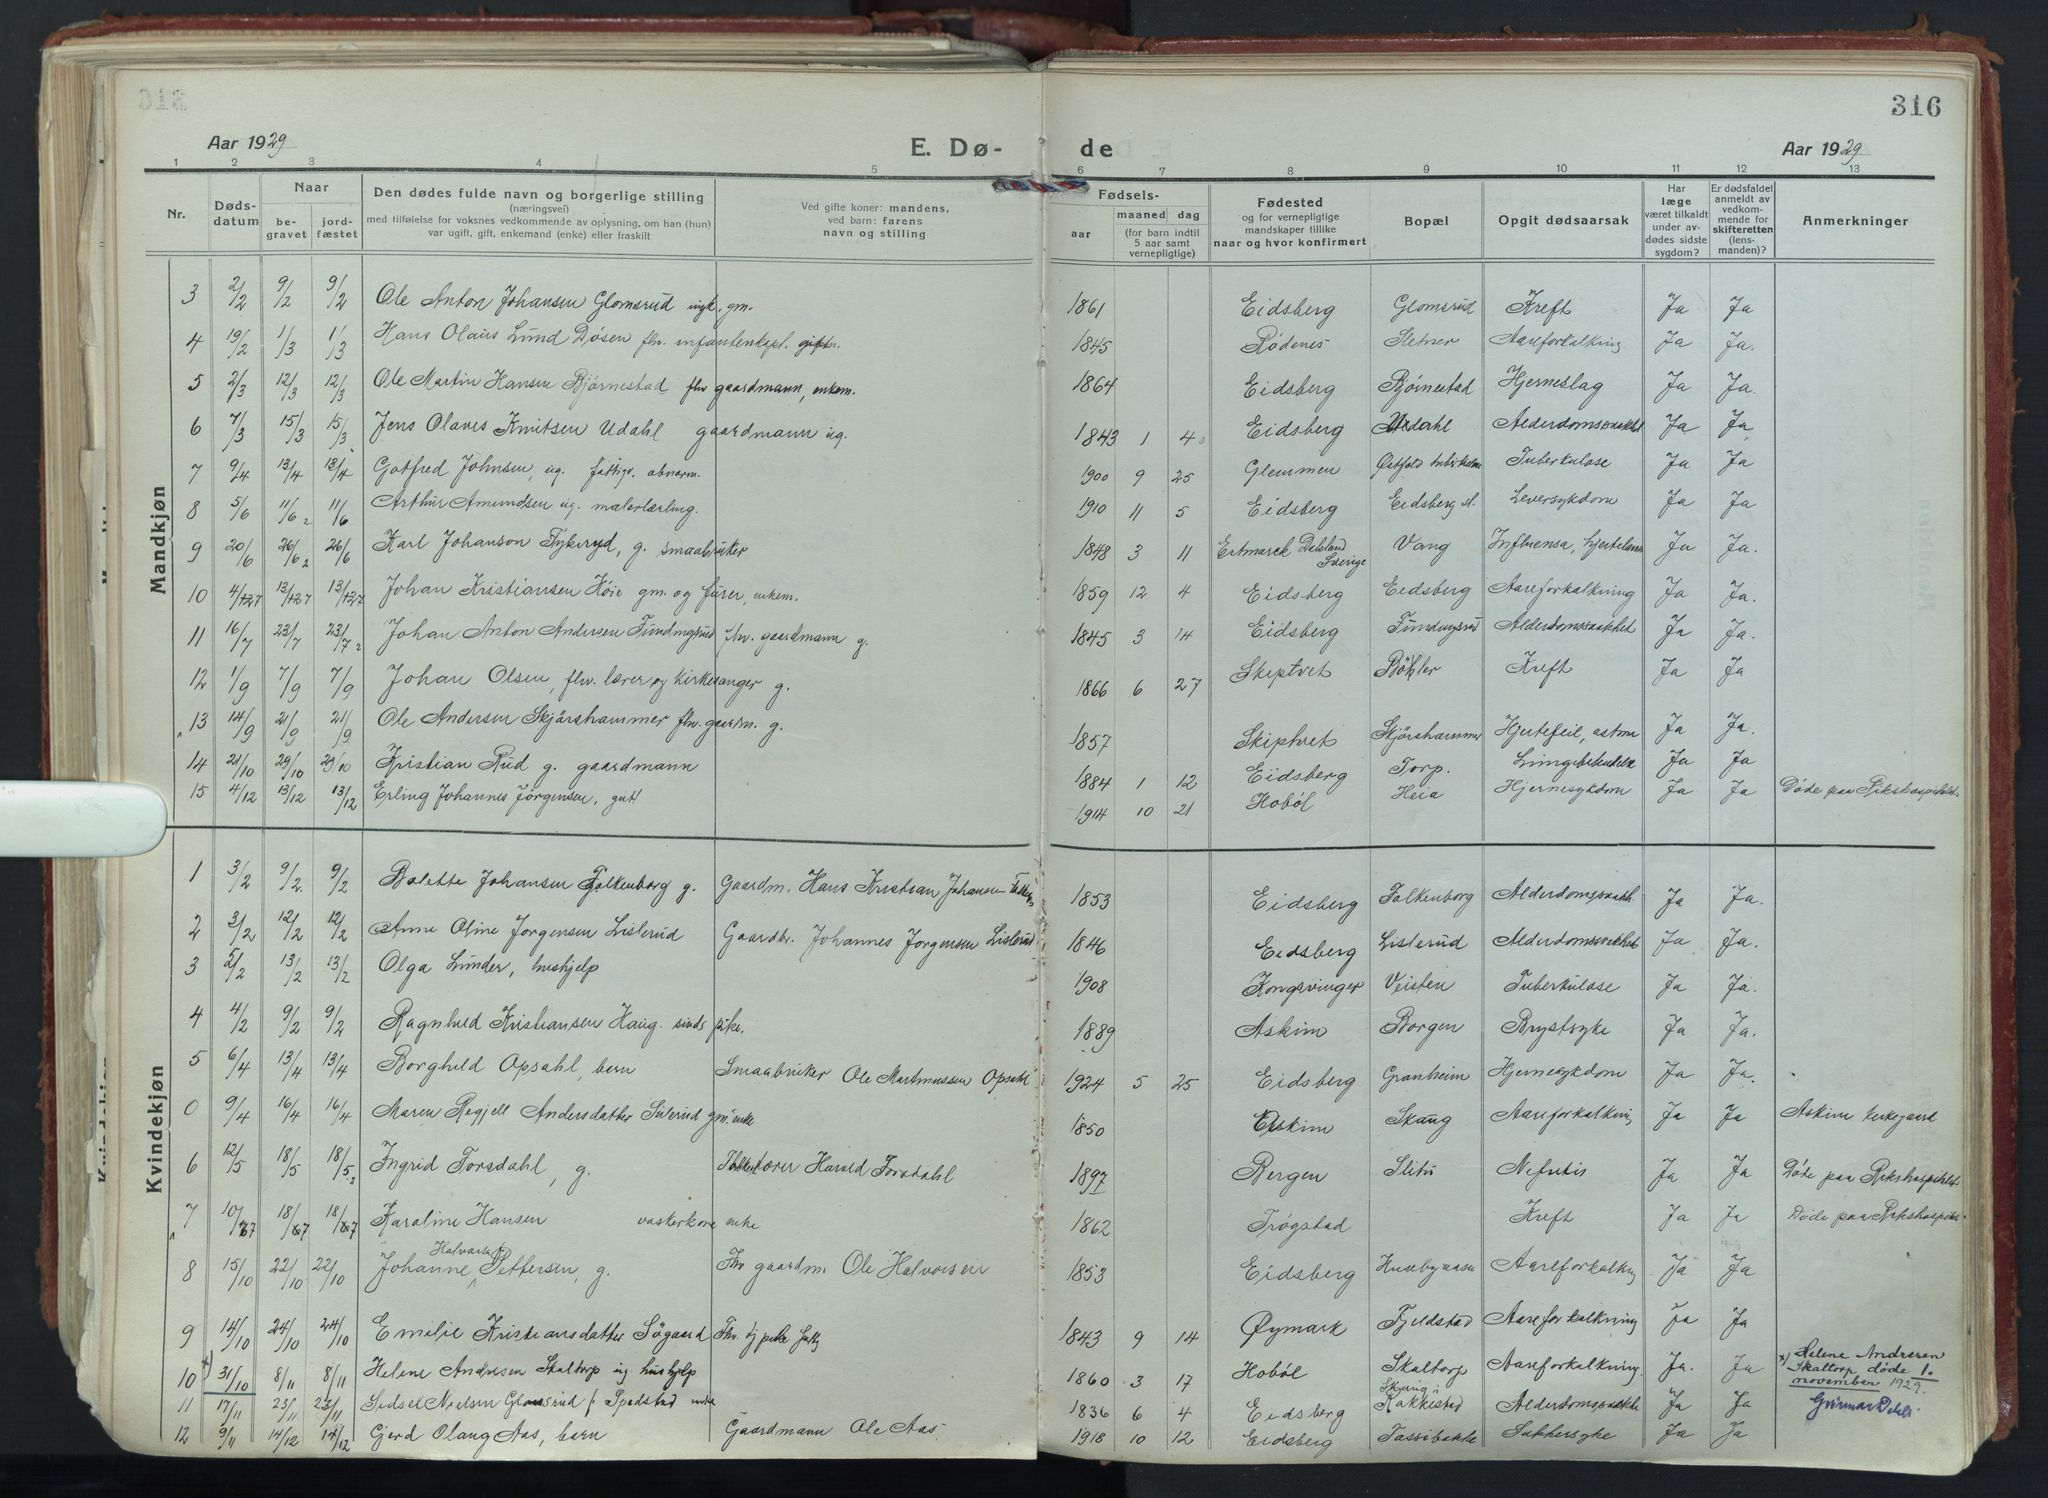 316
Aar 1929
E. Dø-
de
Aar 1929
1 2 3 4 5 6 7 8 9 10 11 12 13
Nr.
Døds-
datum
Naar
be-
gravet
jord-
fæstet
Den dødes fulde navn og borgerlige stilling
(næringsvei)
med tilføielse for voksnes vedkommende av oplysning, om han (hun)
var ugift, gift, enkemand (enke) eller fraskilt
Ved gifte koner: mandens,
ved barn: farens
navn og stilling
Fødsels-
aar
maaned
dag
(for barn indtil
5 aar samt
vernepligtige)
Fødested
og for vernepligtige
mandskaper tillike
naar og hvor konfirmert
Bopæl
Opgit dødsaarsak
Har
læge
været tilkaldt
under av-
dødes sidste
sygdom?
Er dødsfaldet
anmeldt av
vedkom-
mende for
skifteretten
(lens-
manden)?
Anmerkninger
Mandkjøn
3 2/2 9/2 9/2 Ole Anton Johansen Glomsrud gm. 1861 Eidsberg Glomsrud Kreft Ja Ja
4 19/2 1/3 1/3 Hans Olaus Lund Døsen fhv. gift. 1845 Rødenes Sletner Aareforkalkning Ja Ja.
5 2/3 12/3 12/3 Ole Martin Hansen Bjørnestad fhv gaardmann, enkem. 1864 Eidsberg Bjørnestad Hjerneslag Ja Ja.
6 7/3 15/3 15/3 Jens Olaves Knutsen Udahl gaardmann ug. 1843 1 4 Eidsberg Udahl Alderdomssvakhet Ja Ja
7 9/4 13/4 13/4 Gotfred Johnsen, ug. fattigv. abnorm. 1900 9 25 Glemmen Østfold Tuberkulose Ja Ja
8 5/6 11/6 11/6 Arthur Amundsen ug. malerlærling. 1910 11 5 Eidsberg Eidsberg st. Leversykdom Ja Ja
9 20/6 26/6 26/6 Karl Johanson g. smaabruker 1848 3 11 Dalsland Sverige Vang Influensa, Ja Ja.
10 4/7 13/7 13/7 Johan Kristiansen Høie gm. og fører, enkem. 1859 12 4 Eidsberg Eidsberg Aareforkalkning Ja Ja.
11 16/7 23/7 23/7 Johan Anton Andersen Fundingsrud fhv. gaardmann g. 1845 3 14 Eidsberg Fundingsrud Alderdomssvakhet Ja Ja.
12 1/9 7/9 7/9 Johan Olsen, fhv. lærer og kirkesanger g. 1866 6 27 Skiptvet Bøhler Kreft Ja Ja
13 14/9 21/9 21/9 Ole Andersen Skjørshammer fhv. gaardm. g. 1857 Skiptvet Skjørshammer Hjertefeil, astma Ja Ja.
14 21/10 29/10 29/10 Kristian Rud g. gaardmann 1884 1 12 Eidsberg Torp. Ja Ja
15 4/12 13/12 13/12 Erling Johannes Jörgensen, gut 1914 10 21 Hobøl Heia Hjernesykdom Ja Ja Døde paa Rikshospitalet
Kvindekjøn
1 3/2 9/2 9/2 Bolette Johansen Falkenborg g. Gaardm. Hans Kristian Johansen 1853 Eidsberg Falkenborg Alderdomssvakh. Ja Ja.
2 3/2 12/2 12/2 Anne Oline Jørgensen Lislerud Gaardbr. Johannes Jorgensen Lislerud 1846 Eidsberg Lislerud Alderdomssvakhet Ja Ja.
3 5/2 13/2 13/2 Olga Lunder, hushjelp 1908 Kongsvinger Veisten Tuberkulose Ja Ja.
4 4/2 9/2 9/2 Ragnhild Kristiansen Haug. sinds pike. 1889 Askim Borgen Brystsyke Ja Ja.
5 6/4 13/4 13/4 Borghild Opsahl, barn Smaabruker Ole Martinussen Opsahl 1924 5 25 Eidsberg Granheim Hjernesykdom Ja Ja.
0 9/4 16/4 16/4 Maren Andersdatter gm. enke 1850 Askim Skaug Aareforkalkning Ja Ja Askim kirkegaard
6 12/5 18/5 18/5 Ingrid Torsdahl, g. Harald Torsdahl 1897 Bergen Slitu Nefritis Ja Ja Døde paa Rikshospitalet
7 10/7 18/7 18/7 Karoline Hansen vaskerkone enke 1862 Trøgstad Kreft Ja Ja Døde paa Rikshospital
8 15/10 22/10 22/10 Johanne Halvorsen Pettersen, g. Fhv gaardm Ole Halvorsen 1853 Eidsberg Aareforkalkning Ja Ja
9 14/10 24/10 24/10 Emilie Kristiansdatter Søgaard 1843 9 14 Øymark Fjeldstad Aareforkalkning Ja Ja
10 x) 31/10 8/11 8/11 Helene Andresen Skaltorp ug. hushjelp 1860 3 17 Hobøl Skaltorp Aareforkalkning. Ja. Ja x) Helene Andresen
Skaltorp døde 1.
november 1929.
Gunnar Dehli.
11 17/11 23/11 23/11 Sidsel Nielsen Glomsrud f. Spydstad enke 1836 6 4 Eidsberg Skaug i Rakkestad Alderdomssvakhet Ja Ja
12 9/11 14/12 14/12 Gjerd Olaug Aas, barn Gaardmann Ole Aas 1918 10 12 Eidsberg Tassebakke Sukkersyke Ja Ja